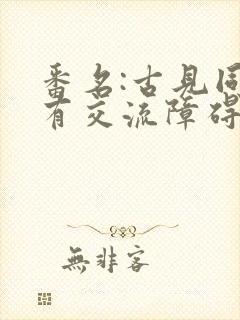 番名:古見同
有交流障碍
無非客